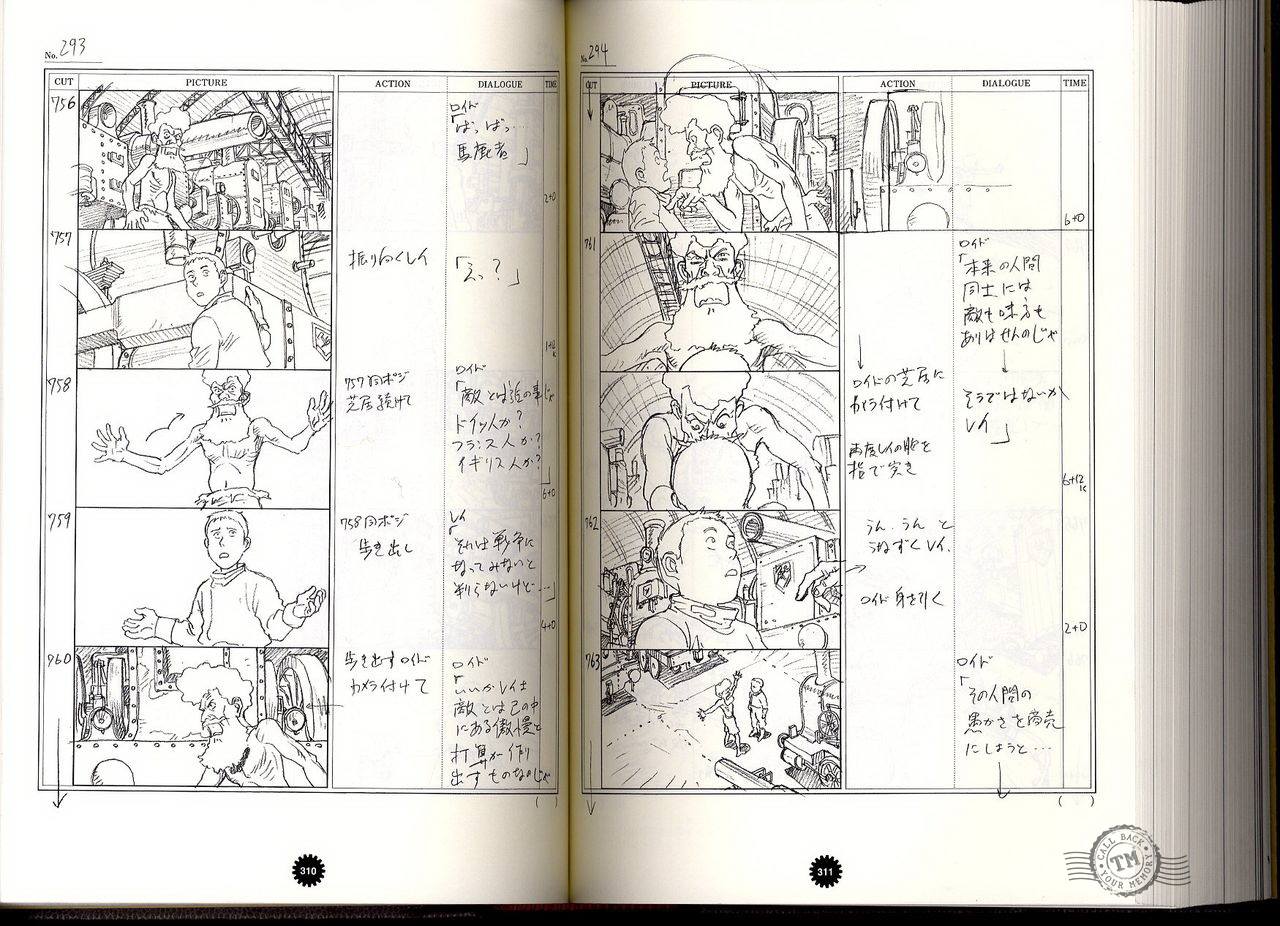 No. 293
CUT
PICTURE
ACTION
DIALOGUE
TIME
756
ロイド
「ばっばっ…
馬鹿者」
2+0
757
振りむくレイ
「えっ？」
758
757同ポジ
芝居続けて
ロイド
「敵とは誰の事じゃ
ドイツ人か？
フランス人か？
イギリス人か？」
6+0
759
758同ポジ
歩き出し
レイ
「それは戦争に
なってみないと
判らないけど…」
4+0
760
歩き出すロイド
カメラ付けて
ロイド
「いいかレイよ
敵とは己の中
にある傲慢と
打算が作り
出すものなのじゃ
( )
310
No. 294
CUT
PICTURE
ACTION
DIALOGUE
TIME
6+0
761
ロイド
「本来の人間
同士には
敵も味方も
ありはせんのじゃ
ロイドの芝居に
カメラ付けて
そうではないか
レイ」
再度レイの胸を
指で突き
762
うん、うんと
うなずくレイ.
ロイド身を引く
2+0
763
ロイド
「その人間の
愚かさを商売
にしようと…
( )
311
CALL BACK
TM
YOUR MEMORY